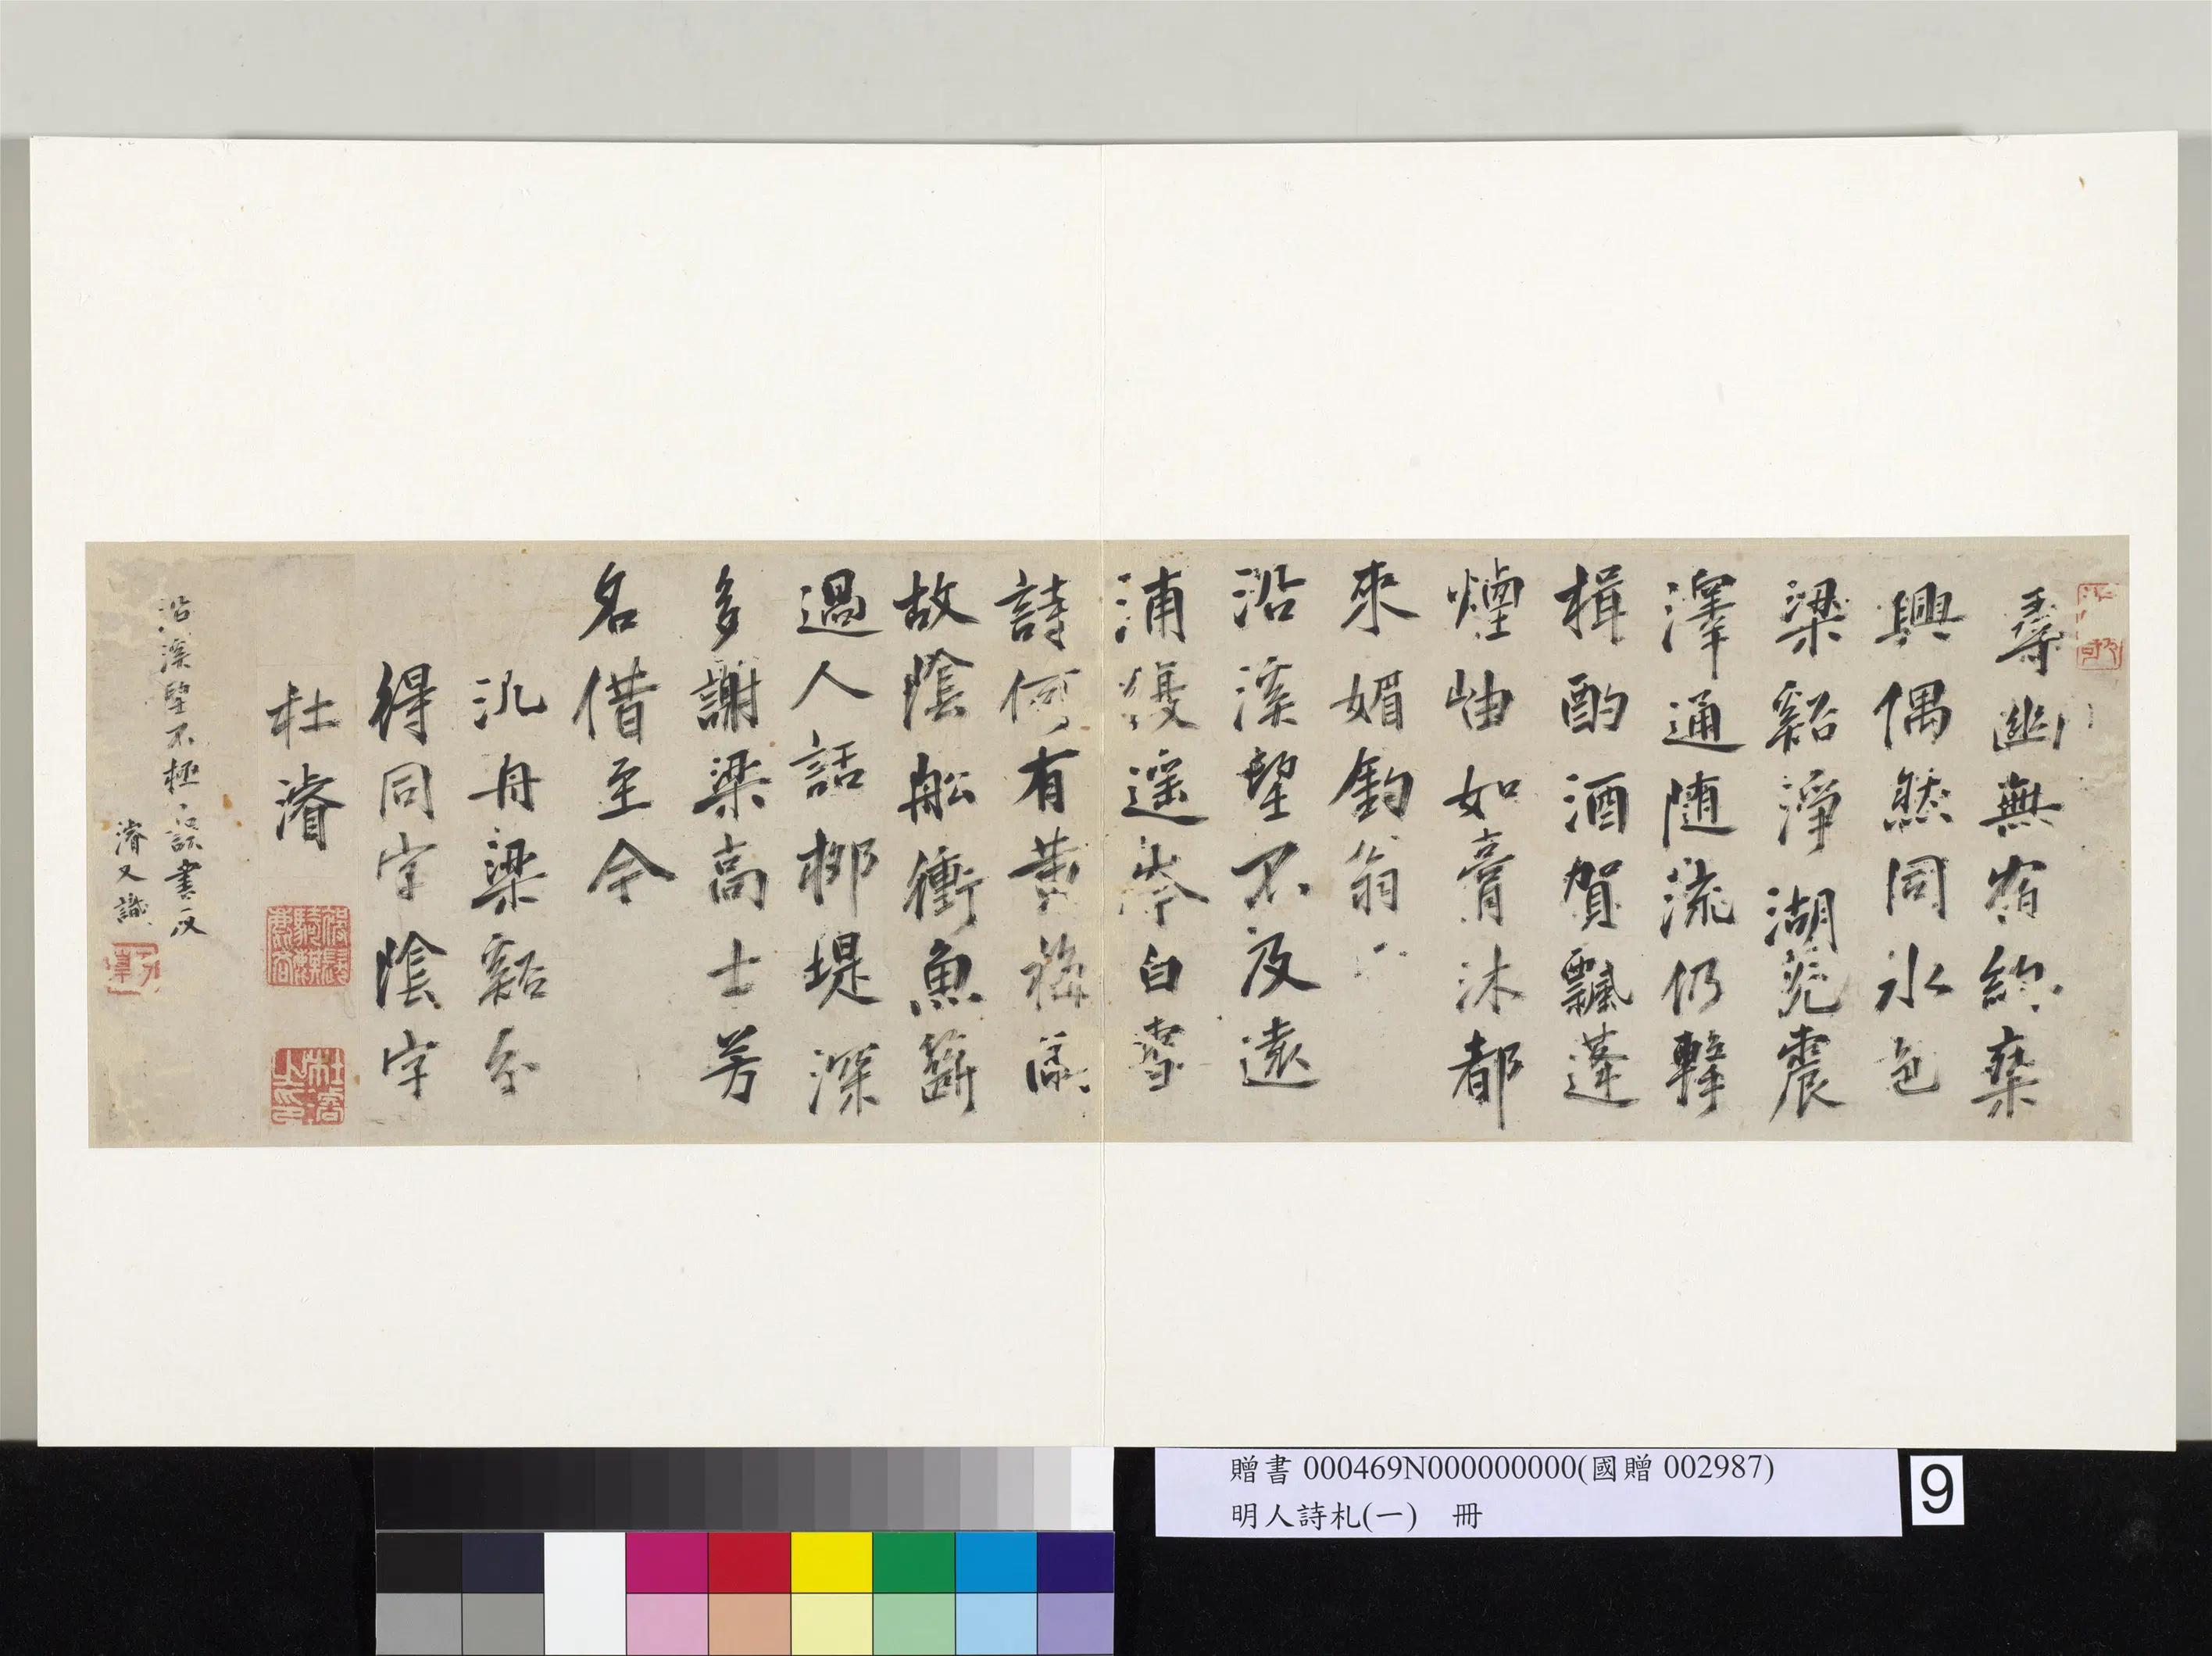 尋幽無宿約乘
興偶然同水色
梁谿淨湖光震
澤通随流仍擊
楫酌酒賀飄蓬
煙岫如膏沐都
來媚釣翁
沿溪望不及遠
浦復遥岑白雪
詩何有黄梅
故陰舩衝魚籪
過人話柳堤深
多謝梁高士芳
名借至今
汎舟梁谿分
得同字陰字
杜濬
沿溪望不極誤書及
濬又識
贈書 000469N000000000(國贈 002987)
明人詩札(一) 冊
9